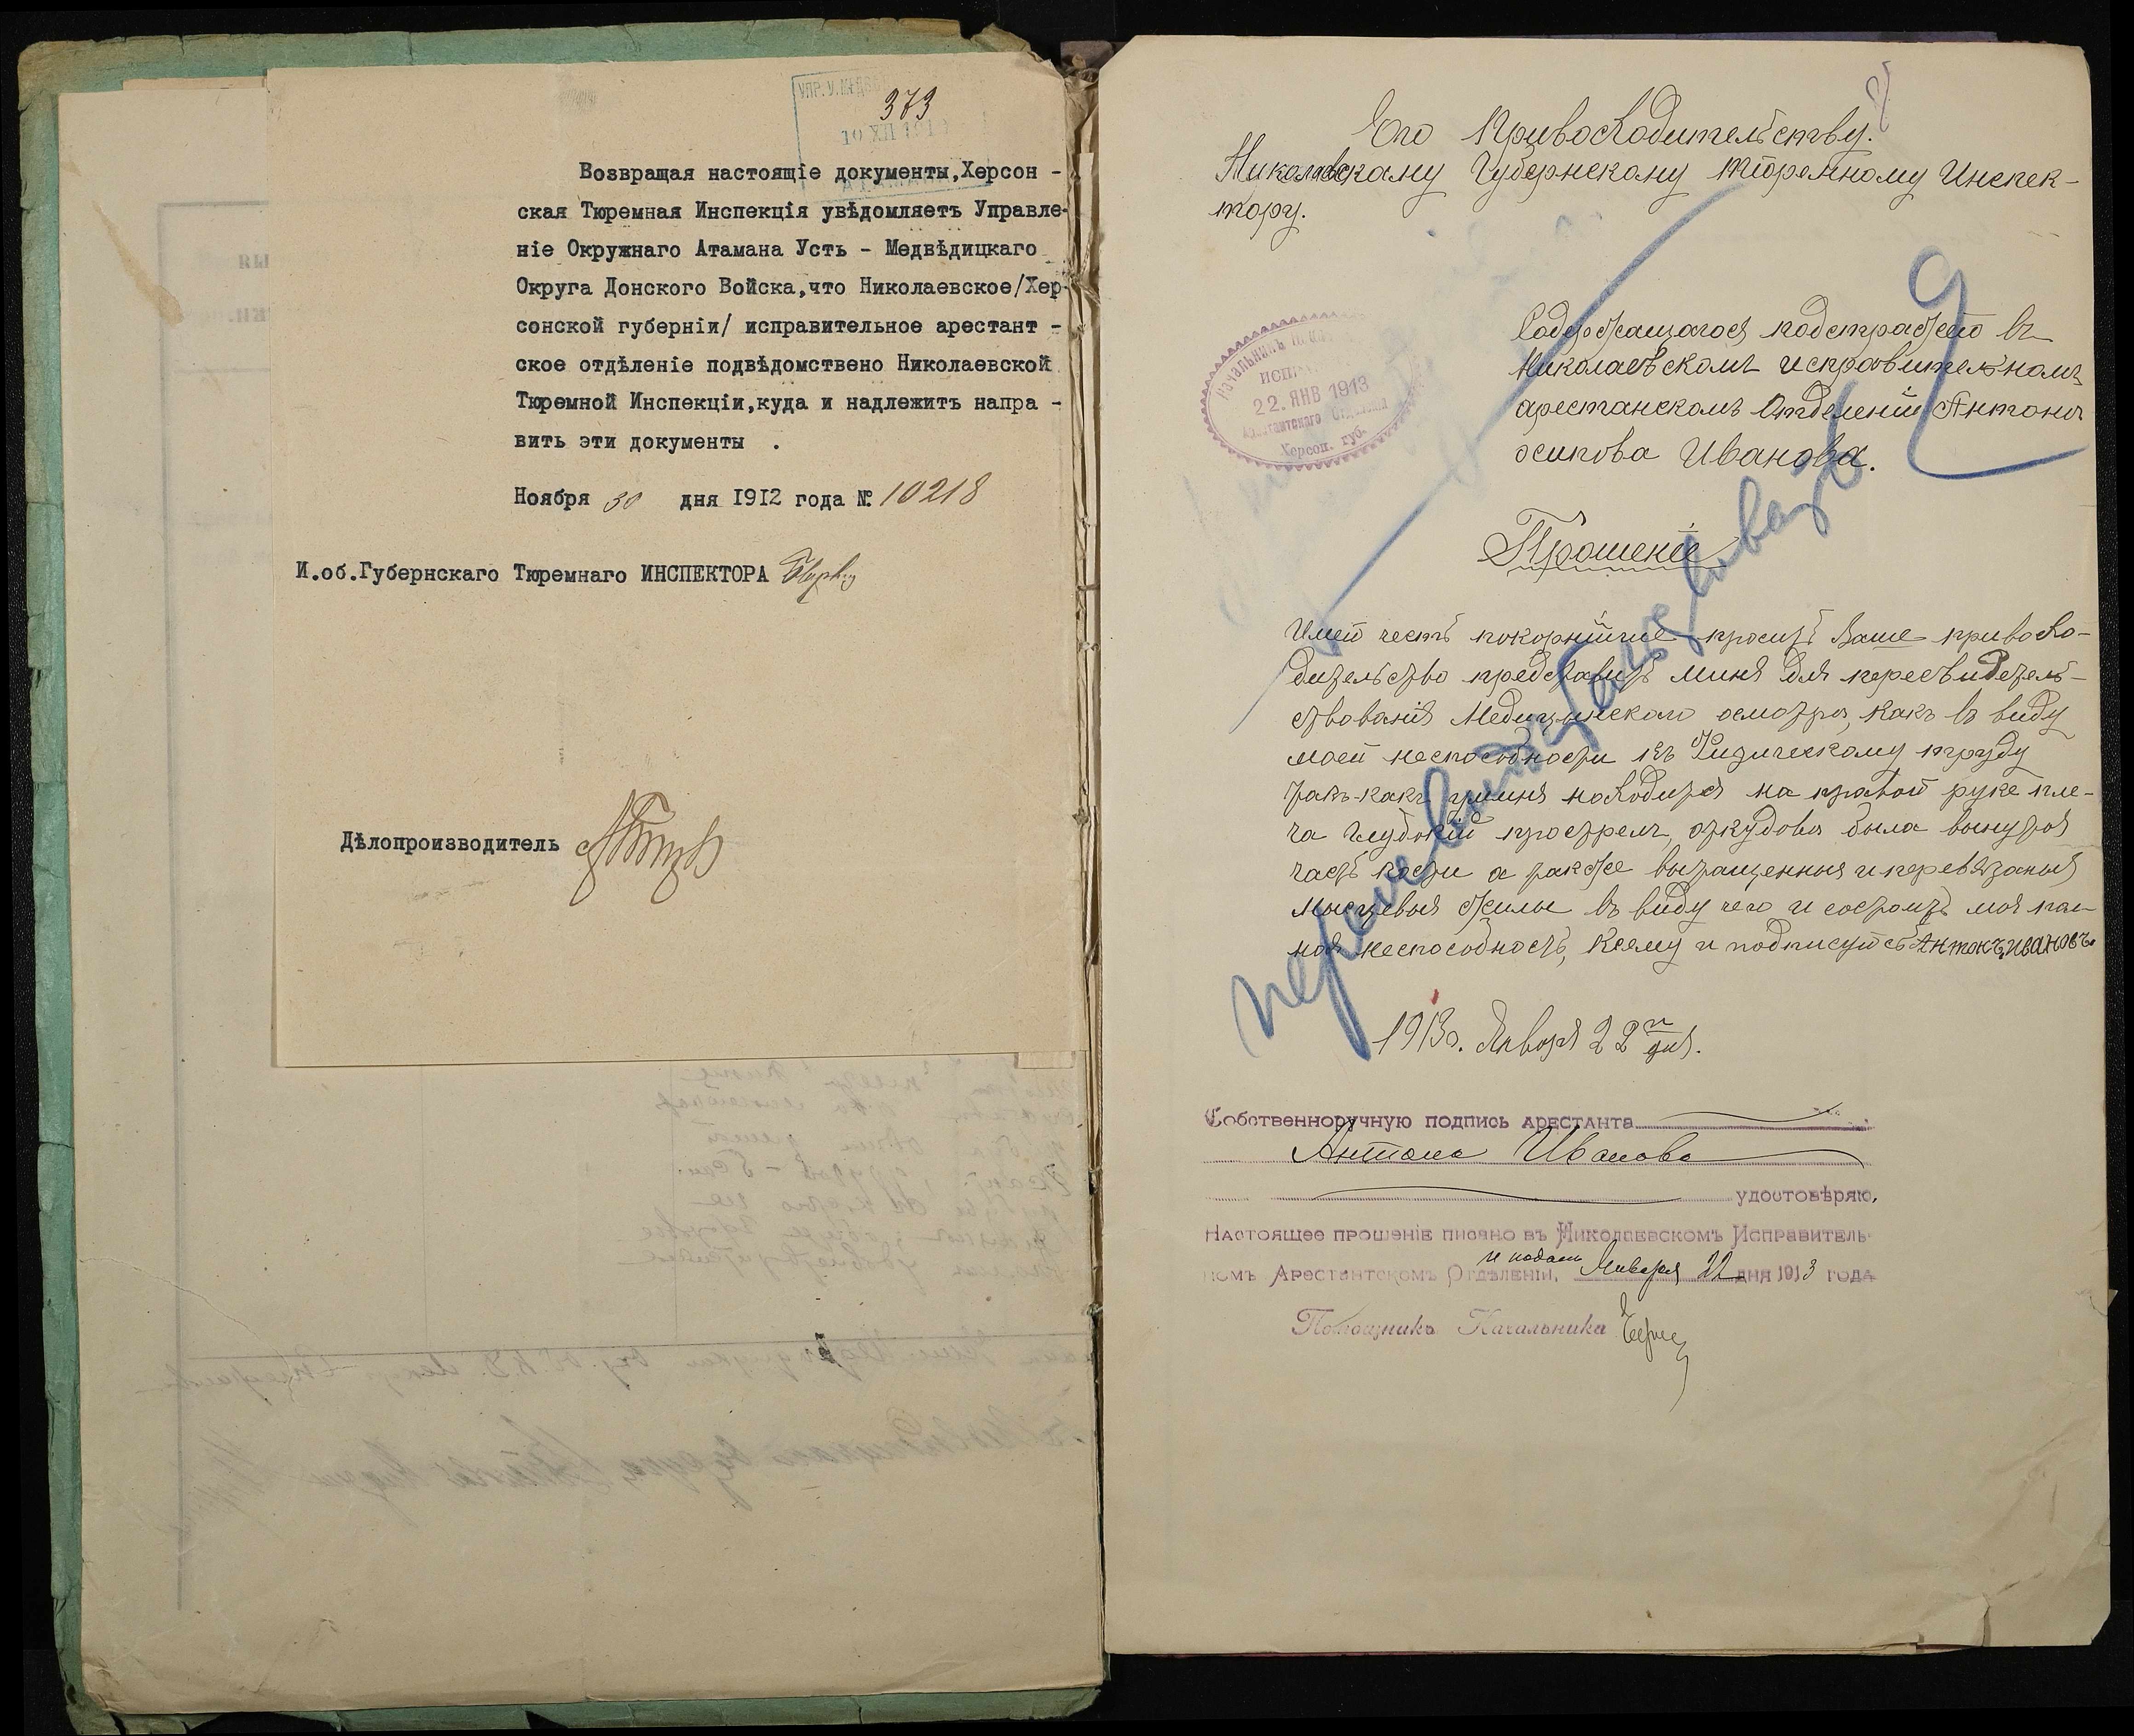 373
УПР. У.МЕДВ
10 XII 191
Возвращая настоящіе документы,Херсон -
ская Тюремная Инспекція увѣдомляетъ Управле-
ніе Окружнаго Атамана Усть - Медвѣдицкаго
Округа Донского Войска,что Николаевское/Хер-
сонской губерніи/ исправительное арестант -
ское отдѣленіе подвѣдомствено Николаевской
Тюремной Инспекціи,куда и надлежитъ напра -
вить эти документы .
Ноября 30 дня 1912 года № 10218
И.об.Губернскаго Тюремнаго ИНСПЕКТОРА
Дѣлопроизводитель
Его Привосходительству.
Николаевскому Губернскому тюремному Инспек-
тору.
Начальникъ
22. ЯНВ 1913
Арестантскаго Отдѣленія
Херсон. губ.
Содержащагося подстражею въ
Николаевскомъ исправителномъ
арестанскомъ Отделеніи Антона
осипова Иванова.
Прошеніе
Имею честь покорнійше просить Ваше привосхо-
дительство представить миня для пересвидетель-
ствованія Медицинскаго осмотра, какъ въ виду
моей неспособности къ Физическому труду
такъ-какъ уминя находится на правой руке пле-
ча глубокій прострелъ, откудова была вынутая
часть кости а также вытращенныя и перевязаныя
мысцевыя жилы въ виду чего и состоитъ моя пол-
ная неспособность, Ксему и подписуюсь Антонъ Ивановъ.
1913 г. Января 22 дня.
Собственноручную подпись арестанта
Антона Иванова
удостовѣряю.
Настоящее прошеніе писано въ Николаевскомъ Исправитель-
номъ Арестантскомъ Отдѣленіи, и подано Января 22 дня 1913 года
Помощникъ Начальника